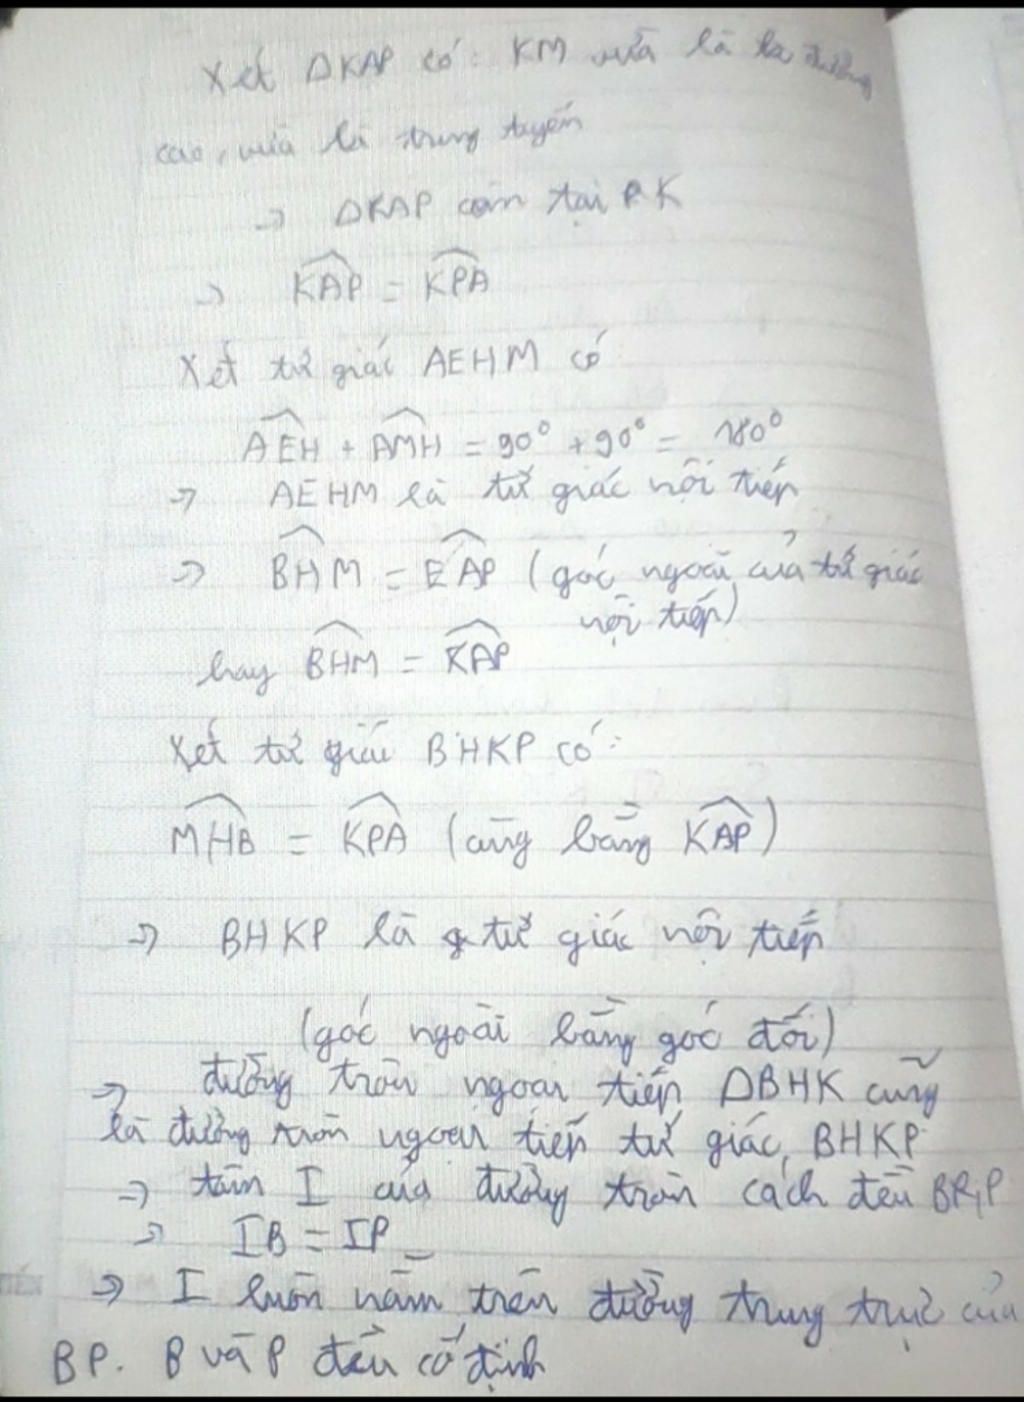 Xét ΔKAP có: KM vừa là là đường
cao, vừa là trung tuyến
→ ΔKAP cân tại K
→ \widehat{KAP} = \widehat{KPA}
Xét tứ giác AEHM có
\widehat{AEH} + \widehat{AMH} = 90° + 90° = 180°
→ AEHM là tứ giác nội tiếp
→ \widehat{BHM} = \widehat{EAP} (góc ngoài của tứ giác
nội tiếp)
hay \widehat{BHM} = \widehat{KAP}
Xét tứ giác BHKP có:
\widehat{MHB} = \widehat{KPA} (cùng bằng \widehat{KAP})
→ BHKP là tứ giác nội tiếp
(góc ngoài bằng góc đối)
→ đường tròn ngoại tiếp ΔBHK cũng
là đường tròn ngoại tiếp tứ giác BHKP
→ tâm I của đường tròn cách đều B, P
→ IB = IP
→ I luôn nằm trên đường trung trực của
BP. B và P đều cố định